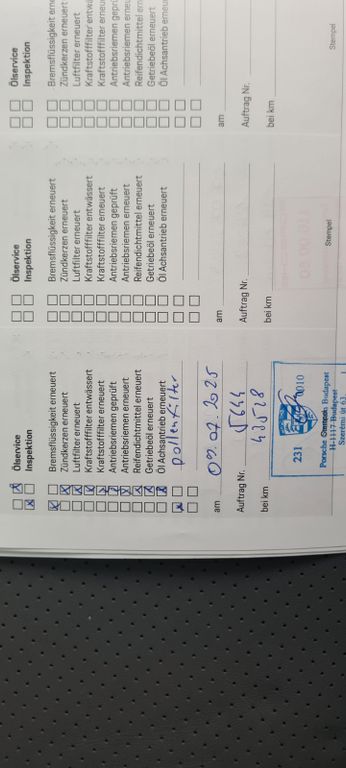 Ölservice
Inspektion
Bremsflüssigkeit erneuert
Zündkerzen erneuert
Luftfilter erneuert
Kraftstofffilter entwässert
Kraftstofffilter erneuert
Antriebsriemen geprüft
Antriebsriemen erneuert
Reifendichtmittel erneuert
Getriebeöl erneuert
Öl Achsantrieb erneuert
pollenfilter
am
Auftrag Nr. 5644
bei km 42528
231
Porsche Budapest
H-1117 Budapest
Szerémi út 63.
Ölservice
Inspektion
Bremsflüssigkeit erneuert
Zündkerzen erneuert
Luftfilter erneuert
Kraftstofffilter entwässert
Kraftstofffilter erneuert
Antriebsriemen geprüft
Antriebsriemen erneuert
Reifendichtmittel erneuert
Getriebeöl erneuert
Öl Achsantrieb erneuert
am
Auftrag Nr.
bei km
Stempel
Ölservice
Inspektion
Bremsflüssigkeit erne
Zündkerzen erneuert
Luftfilter erneuert
Kraftstofffilter entwäs
Kraftstofffilter erneuer
Antriebsriemen geprüf
Antriebsriemen erneu
Reifendichtmittel erne
Getriebeöl erneuert
Öl Achsantrieb erneu
am
Auftrag Nr.
bei km
Stempel